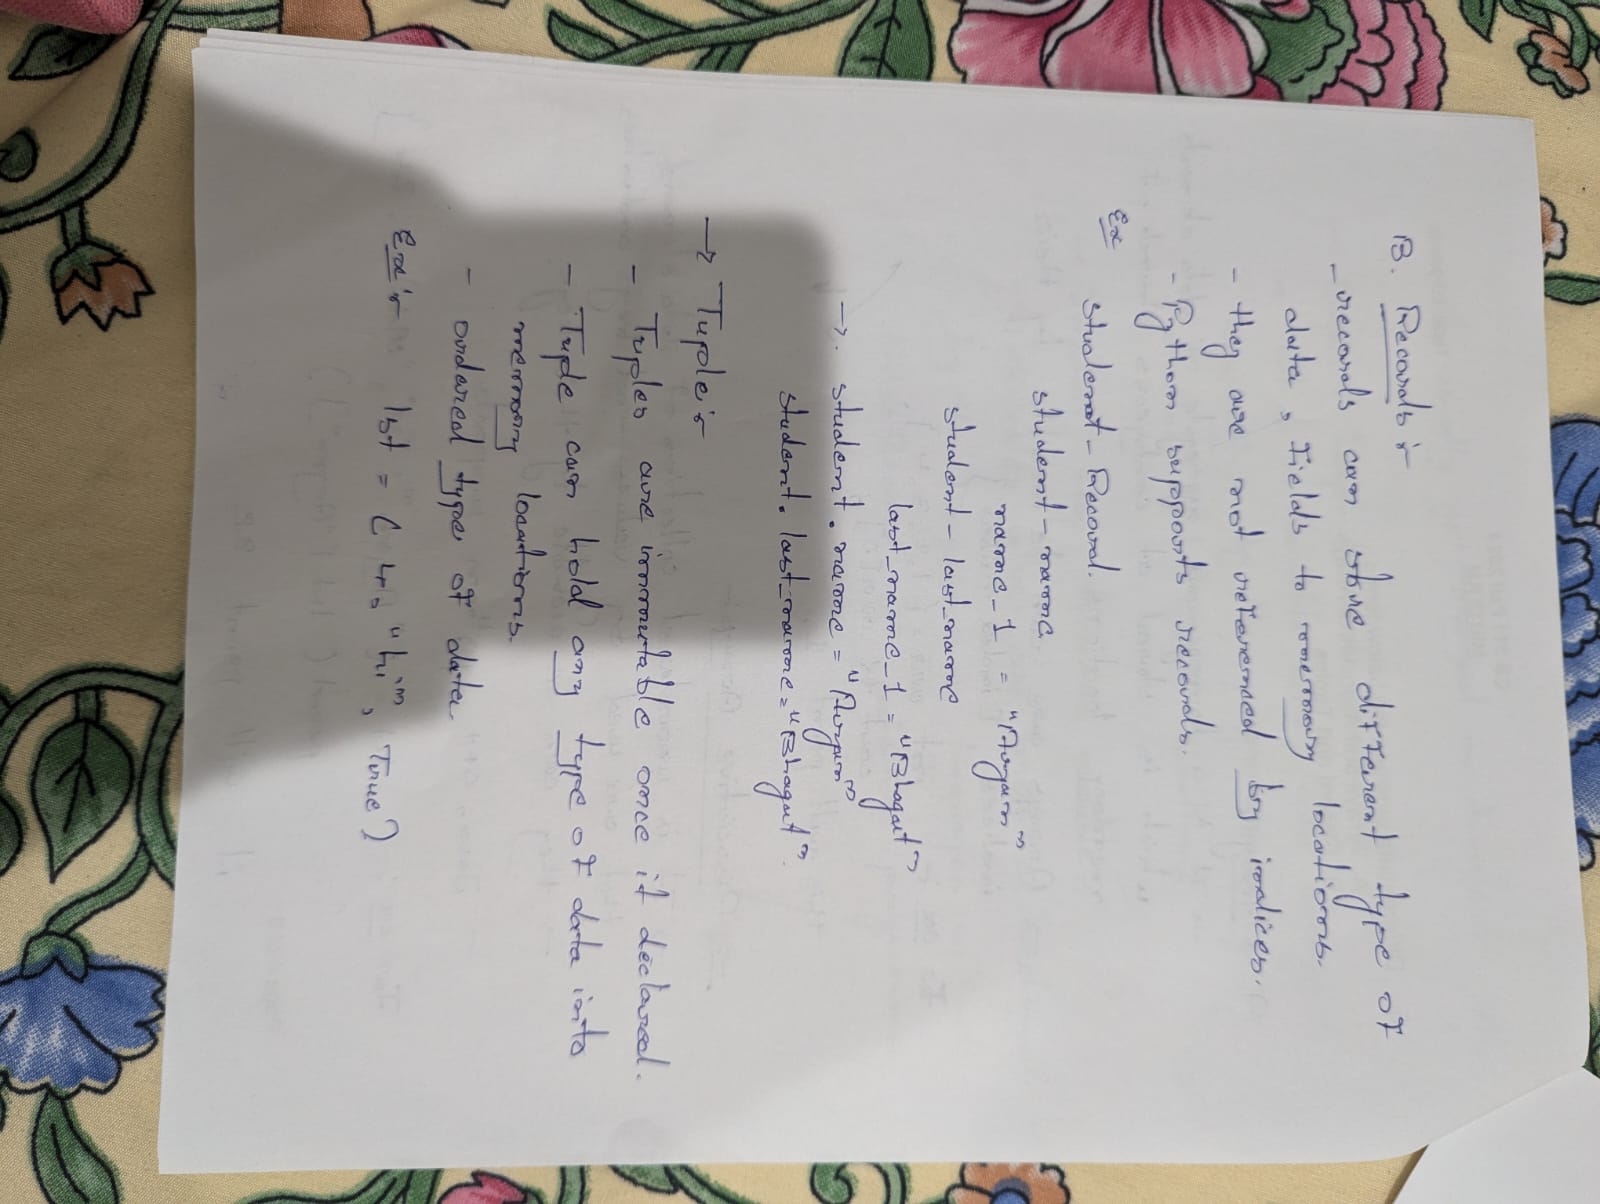 B. Records :-
- records can store different type of
data, fields to memory locations.
- they are not referenced by indices.
- Python supports records.
Ex student-Record.
student-name
name_1 = "Aryan"
student-last_name
last_name_1 = "Bhagat"
→. student.name = "Aryan"
student.last_name = "Bhagat".
→ Tuple :-
- Tuples are immutable once it declared.
- Tuple can hold any type of data into
memory locations.
- ordered type of data.
Ex :- lst = ( 4, "hi", True)